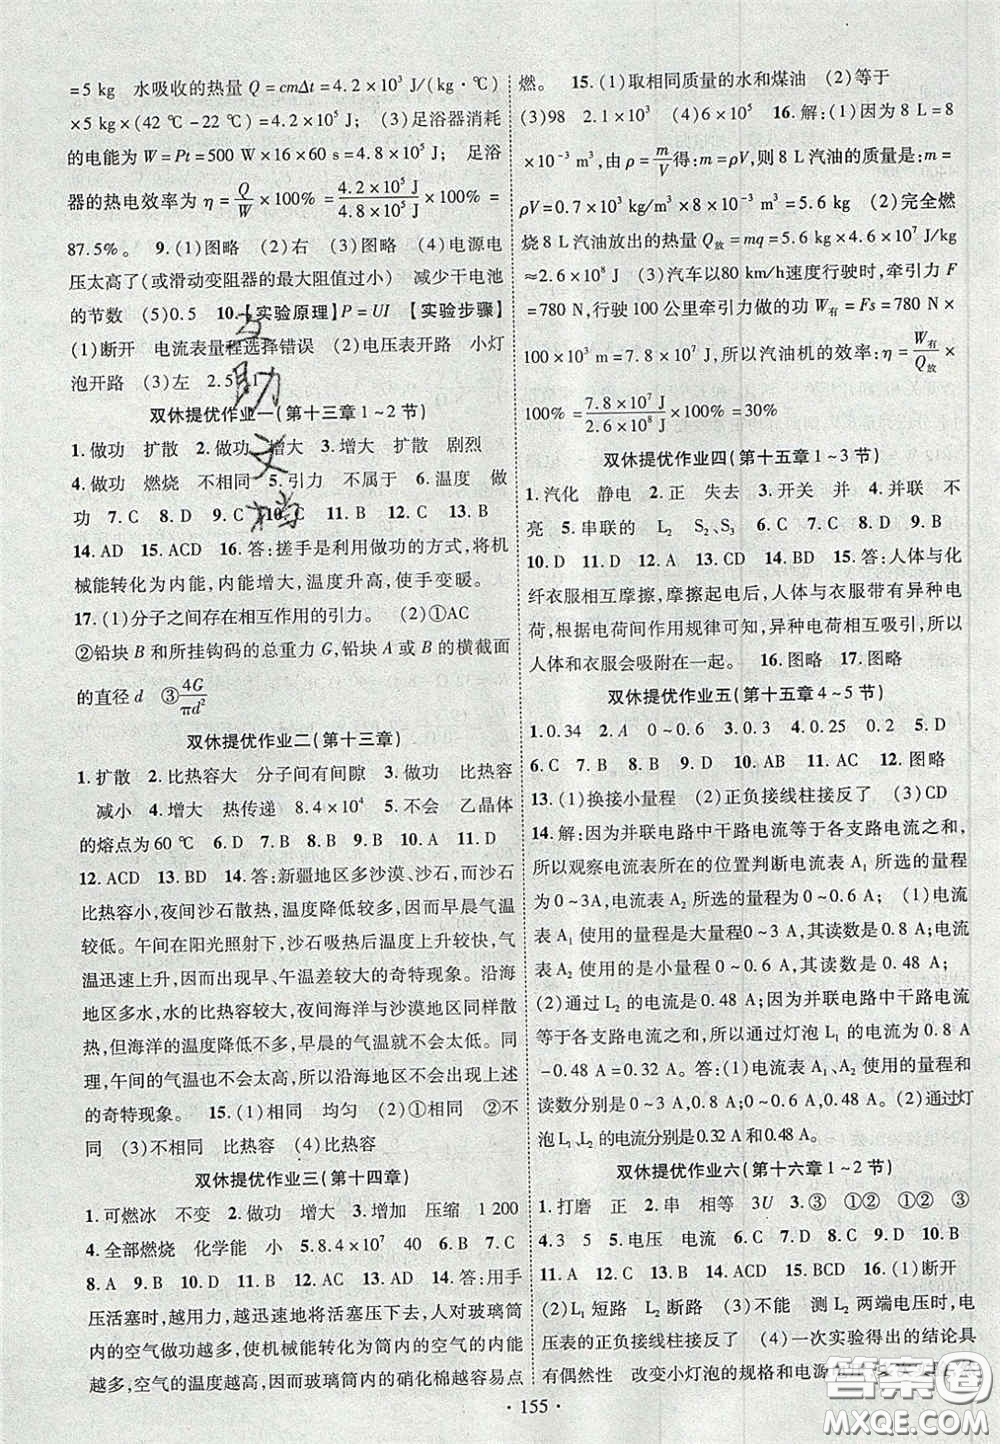 =5 kg　水吸收的热量 Q=cmΔt=4.2×10³ J/(kg·℃)
×5 kg×(42 ℃-22 ℃)=4.2×10⁵ J;　(3)足浴器消耗
的电能为 W=Pt=500 W×16×60 s=4.8×10⁵ J;　足浴
器的热电效率为 η=Q/W×100%=4.2×10⁵ J/4.8×10⁵ J×100%=
87.5%。　9.(1)图略　(2)右　(3)图略　(4)电源电
压太高了(或滑动变阻器的最大阻值过小)　减少干电池
的节数　(5)0.5　10.【实验原理】P=UI　【实验步骤】
(1)断开　电流表量程选择错误　(2)电压表开路　小灯
泡开路　(3)左　2.5
双休提优作业一(第十三章1~2节)
1.做功　扩散　2.做功　增大　3.增大　扩散　剧烈
4.做功　燃烧　不相同　5.引力　不属于　6.温度　做
功　7.C　8.D　9.C　10.C　11.B　12.C　13.B
14.AD　15.ACD　16.答:搓手是利用做功的方式,将机
械能转化为内能,内能增大,温度升高,使手变暖。
17.(1)分子之间存在相互作用的引力。　(2)①AC
②铅块 B 和所挂钩码的总重力 G,铅块 A 或 B 的横截面
的直径 d　③4G/πd²
双休提优作业二(第十三章)
1.扩散　2.比热容大　分子间有间隙　3.做功　比热容
减小　4.增大　热传递　8.4×10⁴　5.不会　乙晶体
的熔点为 60 ℃　6.D　7.D　8.B　9.B　10.A　11.D
12.ACD　13.BD　14.答:新疆地区多沙漠、沙石,而沙石
比热容小,夜间沙石散热,温度降低较多,因而早晨气温
较低。午间在阳光照射下,沙石吸热后温度上升较多,气
温迅速上升,因而出现早、午温差较大的奇特现象。沿海
地区多水,水的比热容较大,夜间海洋与沙漠地区同样散
热,但海洋的温度降低不多,早晨的气温不会太低。同
理,午间的气温也不会太高,所以沿海地区不会出现上述
的奇特现象。　15.(1)相同　均匀　(2)①不相同　②不
同　(3)不相同　比热容　(4)比热容
双休提优作业三(第十四章)
1.可燃冰　不变　2.做功　增大　3.增加　压缩　1 200
4.全部燃烧　化学能　小　5.8.4×10⁷　40　6.B　7.C
8.A　9.B　10.D　11.B　12.AC　13.AD　14.答:用手
压活塞时,越用力,越迅速地将活塞压下去,人对玻璃筒
内的空气做功越多,使机械能转化为筒内的空气的内能
越多,空气的温度越高,因而玻璃筒内的硝化棉越容易点
燃。　15.(1)取相同质量的水和煤油　(2)等于
(3)98　2.1×10³　(4)6×10⁵　16.解:(1)因为 8 L=8
×10⁻³ m³,由 ρ=m/V得:m=ρV,则 8 L汽油的质量是:m=
ρV=0.7×10³ kg/m³×8×10⁻³ m³=5.6 kg　(2)完全燃
烧 8 L 汽油放出的热量 Q放=mq=5.6 kg×4.6×10⁷ J/kg
≈2.6×10⁸ J　(3)汽车以80 km/h速度行驶时,牵引力 F
=780 N,行驶 100 公里牵引力做的功 W有=Fs=780 N×
×100×10³ m=7.8×10⁷ J,所以汽油机的效率:η=W有/Q放×
100%=7.8×10⁷ J/2.6×10⁸ J×100%=30%
双休提优作业四(第十五章1~3节)
1.汽化　静电　2.正　失去　3.开关　并　4.并联　不
亮　5.串联的　L₂　S₂、S₃　6.C　7.D　8.C　9.B
10.D　11.A　12.D　13.CD　14.AD　15.答:人体与化
纤衣服相互摩擦,摩擦起电后,人体与衣服带有异种电
荷,根据电荷间作用规律可知,异种电荷相互吸引,所以
人体和衣服会吸附在一起。　16.图略　17.图略
双休提优作业五(第十五章4~5节)
1.0.34　2.A　0~0.6　0.02　3.0　4.0.25　0.2　5.D
6.C　7.B　8.C　9.B　10.AC　11.AC　12.图略
13.(1)换接小量程　(2)正负接线柱接反了　(3)CD
14.解:因为并联电路中干路电流等于各支路电流之和,
所以观察电流表所在的位置判断电流表 A₁ 所选的量程
为 0~3A,电流表 A₂ 所选的量程为 0~0.6 A;　(1)电流
表 A₁ 使用的量程是大量程0~3 A,其读数为 0.8 A;电流
表 A₂ 使用的是小量程 0~0.6 A,其读数是 0.48 A;
(2)通过 L₂ 的电流是 0.48 A;因为并联电路中干路电流
等于各支路电流之和,所以通过灯泡 L₁ 的电流为 0.8 A
-0.48 A=0.32 A。　答:(1)电流表 A₁、A₂ 使用的量程和
读数分别是 0~3 A,0.8 A;0~0.6 A,0.48 A。(2)通过灯
泡 L₁、L₂ 的电流分别是0.32 A 和0.48 A。
双休提优作业六(第十六章1~2节)
1.打磨　正　2.串　相等　3U　3.③　①②　①②　③
4.3　5　5.电压　电流　6.C　7.D　8.C　9.B　10.C
11.A　12.C　13.AC　14.ACD　15.BCD　16.(1)断开
(2)L₁ 短路　L₂ 断路　(3)不能　测 L₂ 两端电压时,电
压表的正负接线柱接反了　(4)一次实验得出的结论具
有偶然性　改变小灯泡的规格和电源
· 155 ·
助
文
档
答案圈
MXQE.COM